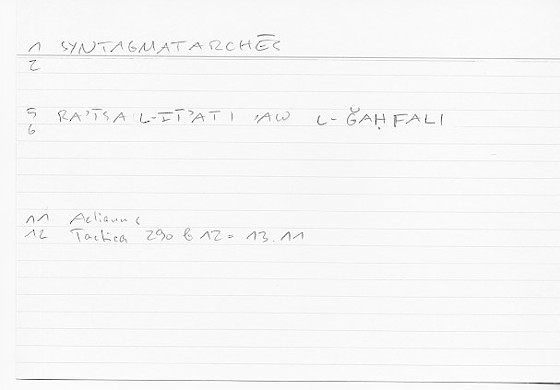 1 SYNTAGMATARCHĒS
2
5 RA'ĪSA L-ĪṬ'ATI 'AW L-ǦAḤFALI
6
11 Aelianus
12 Tactica 290 b 12 = 13.11